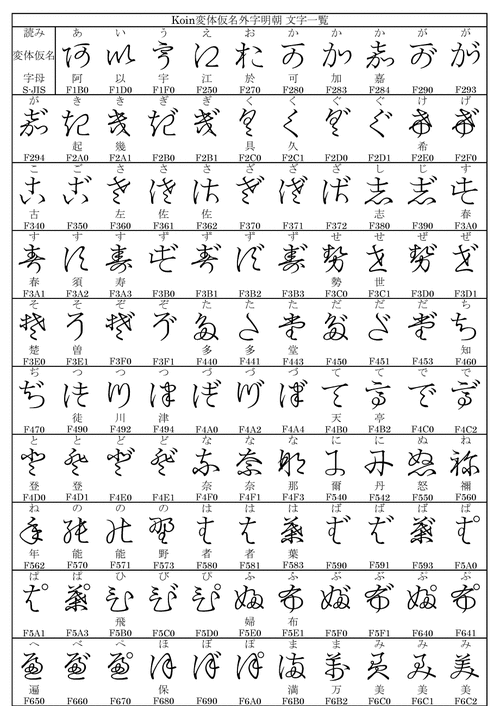 Koin変体仮名外字明朝 文字一覧
読み あ い う え お か か か が が
変体仮名
字母 阿 以 宇 江 於 可 加 嘉
S-JIS F1B0 F1D0 F1F0 F250 F270 F280 F283 F284 F290 F293
が き き ぎ ぎ く く ぐ ぐ け げ
起 幾 具 久 希
F294 F2A0 F2A1 F2B0 F2B1 F2C0 F2C1 F2D0 F2D1 F2E0 F2F0
こ ご さ さ さ ざ ざ ざ し じ す
古 左 佐 佐 志 春
F340 F350 F360 F361 F362 F370 F371 F372 F380 F390 F3A0
す す す ず ず ず ず せ せ ぜ ぜ
春 須 寿 勢 世
F3A1 F3A2 F3A3 F3B0 F3B1 F3B2 F3B3 F3C0 F3C1 F3D0 F3D1
そ そ ぞ ぞ た た た だ だ だ ち
楚 曽 多 多 堂 知
F3E0 F3E1 F3F0 F3F1 F440 F441 F443 F450 F451 F453 F460
ぢ つ つ つ づ づ づ て て で で
徒 川 津 天 亭
F470 F490 F492 F494 F4A0 F4A2 F4A4 F4B0 F4B2 F4C0 F4C2
と と ど ど な な な に に ぬ ね
登 登 奈 奈 那 爾 丹 怒 禰
F4D0 F4D1 F4E0 F4E1 F4F0 F4F1 F4F3 F540 F542 F550 F560
ね の の の は は は ば ば ば ぱ
年 能 能 野 者 者 葉
F562 F570 F571 F573 F580 F581 F583 F590 F591 F593 F5A0
ぱ ぱ ひ び ぴ ふ ふ ぶ ぶ ぷ ぷ
飛 婦 布
F5A1 F5A3 F5B0 F5C0 F5D0 F5E0 F5E1 F5F0 F5F1 F640 F641
へ べ ぺ ほ ぼ ぽ ま ま み み み
遍 保 満 万 美 美 美
F650 F660 F670 F680 F690 F6A0 F6B0 F6B1 F6C0 F6C1 F6C2